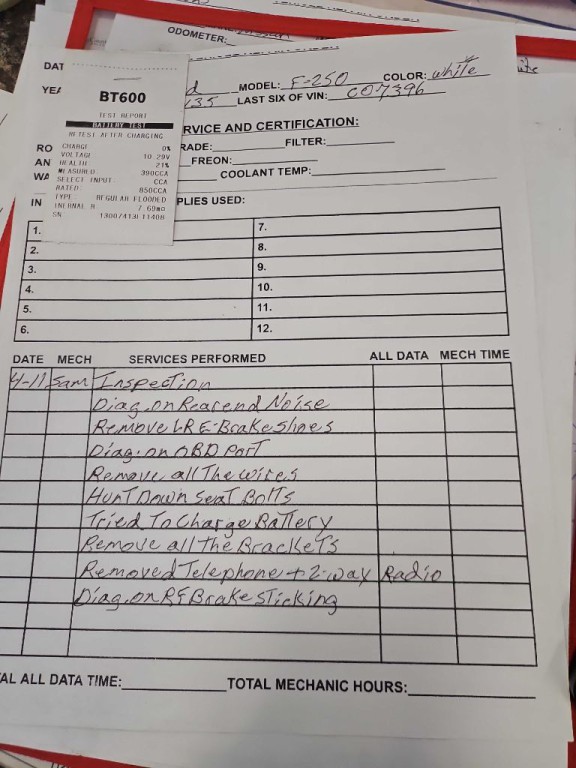 ODOMETER:
DAT
YEA
d MODEL: F-250 COLOR: white
LAST SIX OF VIN: C07396
BT600
TEST REPORT
BATTERY TEST
RETEST AFTER CHARGING
CHARGE 0%
VOLTAGE 10.29V
HEALTH 21%
MEASURED 390CCA
SELECT INPUT CCA
RATED: 850CCA
TYPE REGULAR FLOODED
INTERNAL R 7.69mΩ
SN
RVICE AND CERTIFICATION:
RO RADE: FILTER:
AN FREON:
WA COOLANT TEMP:
IN PLIES USED:
1. 7.
2. 8.
3. 9.
4. 10.
5. 11.
6. 12.
DATE MECH SERVICES PERFORMED ALL DATA MECH TIME
4-11 Sam Inspection
Diag. on Rear end Noise
Remove LR E-Brake Shoes
Diag. on OBD Port
Remove all The Wires
Hunt Down Seat Bolts
Tried To Charge Battery
Remove all The Brackets
Removed Telephone + 2-way Radio
Diag. on RF Brake Sticking
AL ALL DATA TIME: TOTAL MECHANIC HOURS: